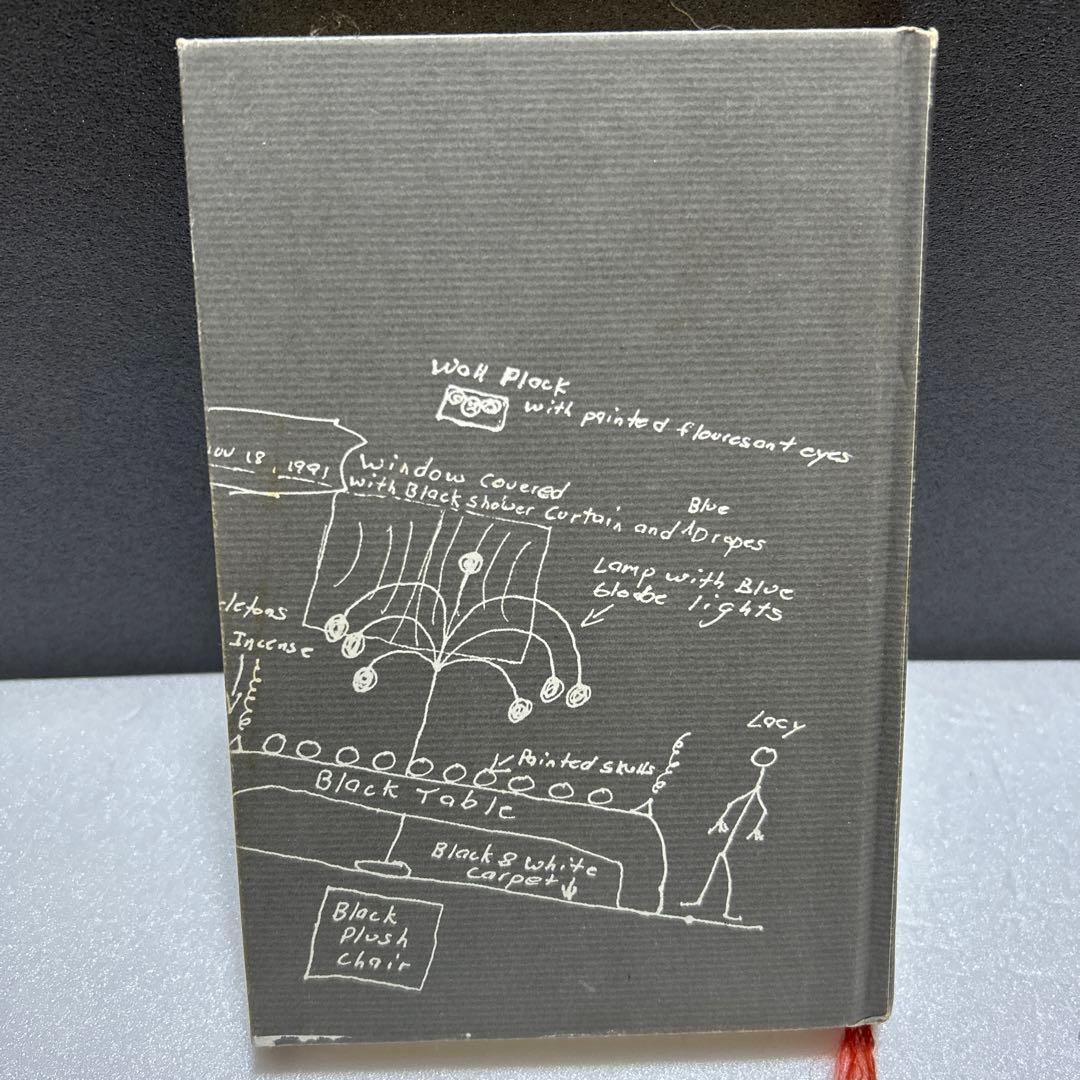 Wall Plack
with painted flouresant eyes
18, 1991
Window Covered
with Black Shower Curtain and Blue Drapes
Lamp with Blue
Globbe lights
Incense
Lacy
Painted Skulls
Black Table
Black & White
Carpet
Black
Plush
Chair